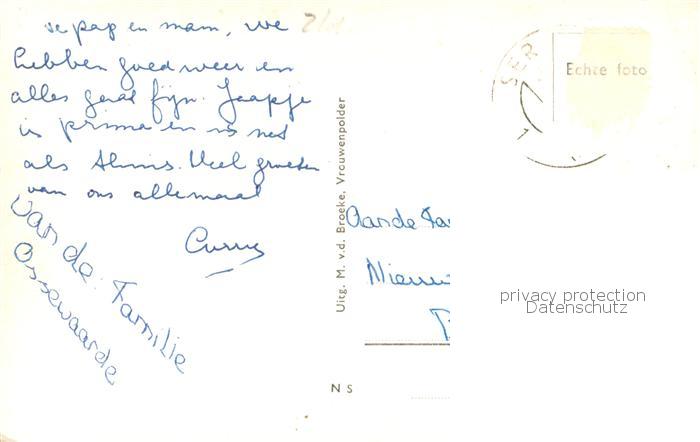 pap en mam, we
hebben goed weer en
alles gaat fijn. Jaapje
is prima en is net
als thuis. Veel groeten
van ons allemaal
Van de Familie
Ossewaarde
Uitg. M. v.d. Broeke, Vrouwenpolder
N S
SER
Echte foto
Aan de Fa
Nieuw
privacy protection
Datenschutz